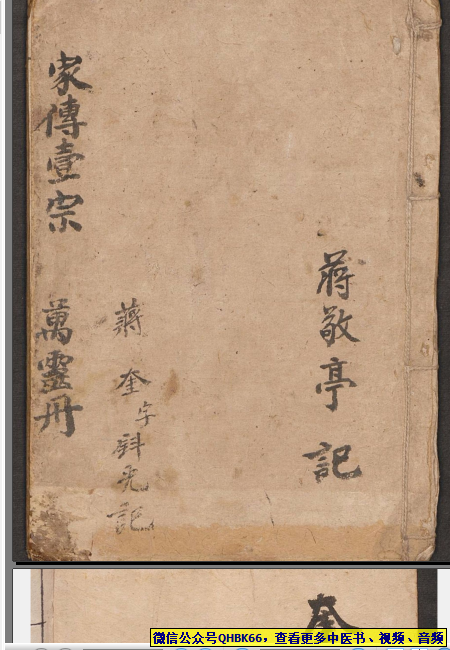 蔣敬亭記
蔣奎字㪷光記
家傳壹宗 萬靈冊
奎
微信公众号QHBK66，查看更多中医书、视频、音频